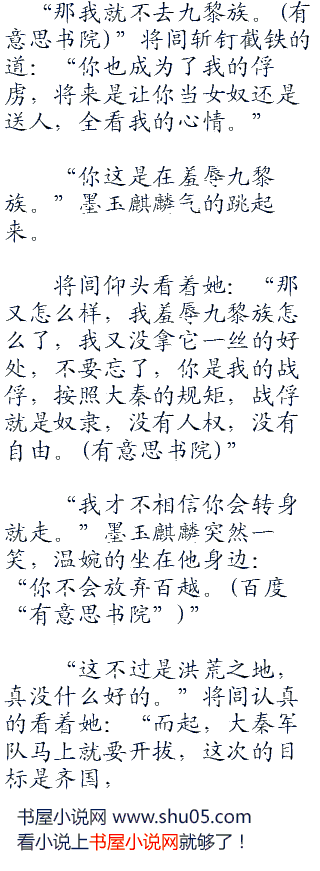 “那我就不去九黎族。(有
意思书院)”将闾斩钉截铁的
道：“你也成为了我的俘
虏，将来是让你当女奴还是
送人，全看我的心情。”
“你这是在羞辱九黎
族。”墨玉麒麟气的跳起
来。
将闾仰头看着她：“那
又怎么样，我羞辱九黎族怎
么了，我又没拿它一丝的好
处，不要忘了，你是我的战
俘，按照大秦的规矩，战俘
就是奴隶，没有人权，没有
自由。(有意思书院)”
“我才不相信你会转身
就走。”墨玉麒麟突然一
笑，温婉的坐在他身边：
“你不会放弃百越。(百度
“有意思书院”)”
“这不过是洪荒之地，
真没什么好的。”将闾认真
的看着她：“而起，大秦军
队马上就要开拔，这次的目
标是齐国，
书屋小说网 www.shu05.com
看小说上书屋小说网就够了！